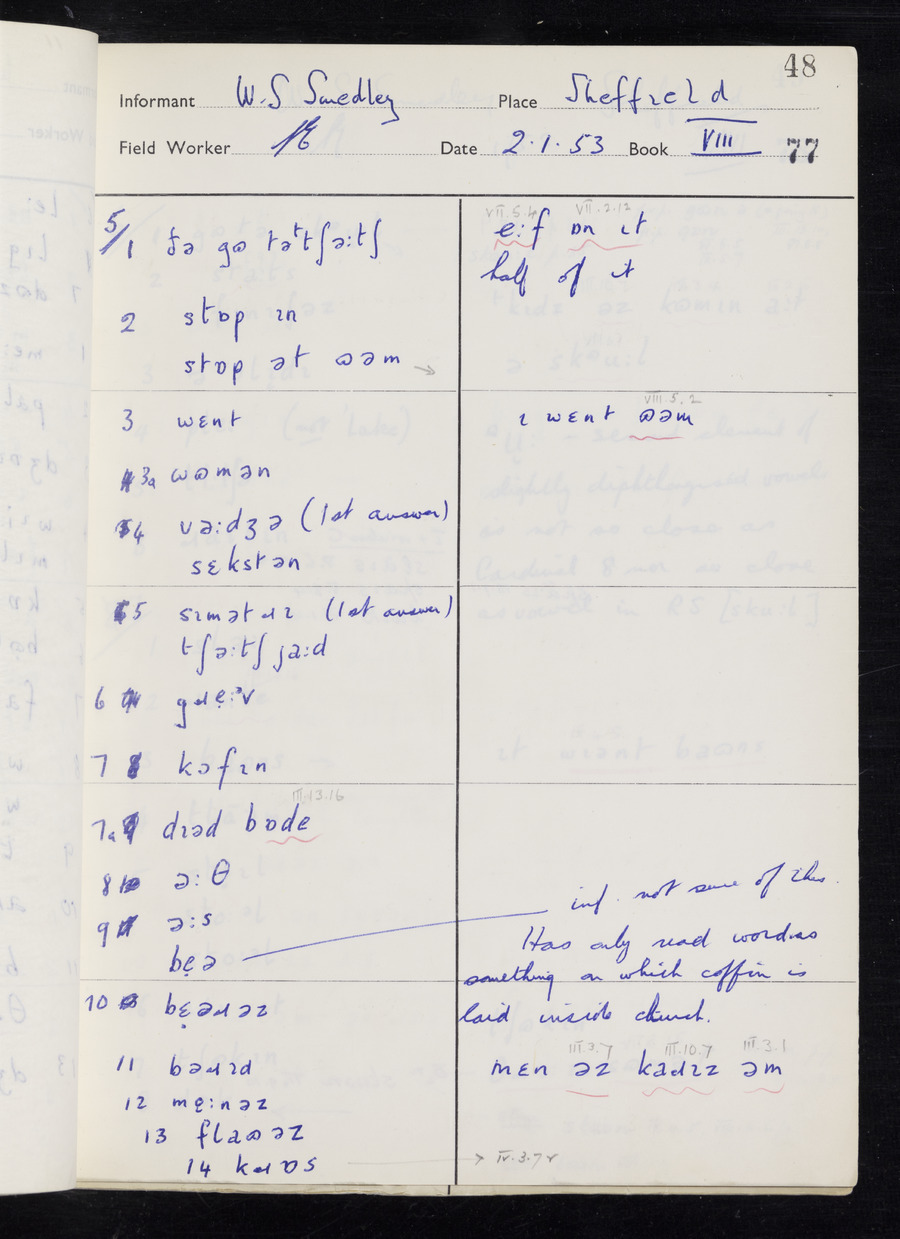 48
Informant W.S Smedley Place Sheffield
Field Worker Date 2.1.53 Book VIII 77
VII.5.4 VII.2.12
5/1 ðə gɷ tətʃə:tʃ e:f ɒn ɪt
half of it
2 stɒp ɪn
stɒp ət ɷəm →
VIII.5.2
3 wɛnt ɪ wɛnt ɷəm
3a wɷmən
4 və:dʒə (1st answer)
sɛkstən
5 sɪmətɹɪ (1st answer)
tʃə:tʃ ja:d
6 gɹẹ:ᵊv
7 kɔfɪn
III.13.16
7a dɪəd bɒde
8 ə:θ
inf. not sure of this.
9 ə:s
Has only read word as
bẹə
something on which coffin is
10 bɛ̣əɹəz
laid inside church.
III.3.7 III.10.7 III.3.1
11 bəɹɪd mɛn əz kaɹɪz əm
12 mẹ:nəz
13 flaɷəz
14 kɹɒs → IV.3.7v